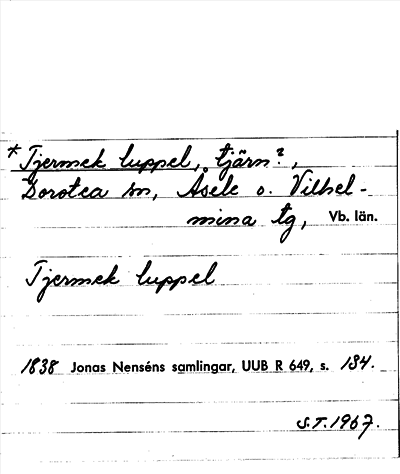 *Tjermek luppel, tjärn?,
Dorotea sn, Åsele o. Vilhel-
mina tg, Vb. län.
Tjermek luppel
1838 Jonas Nenséns samlingar, UUB R 649, s. 134.
S.T. 1967.